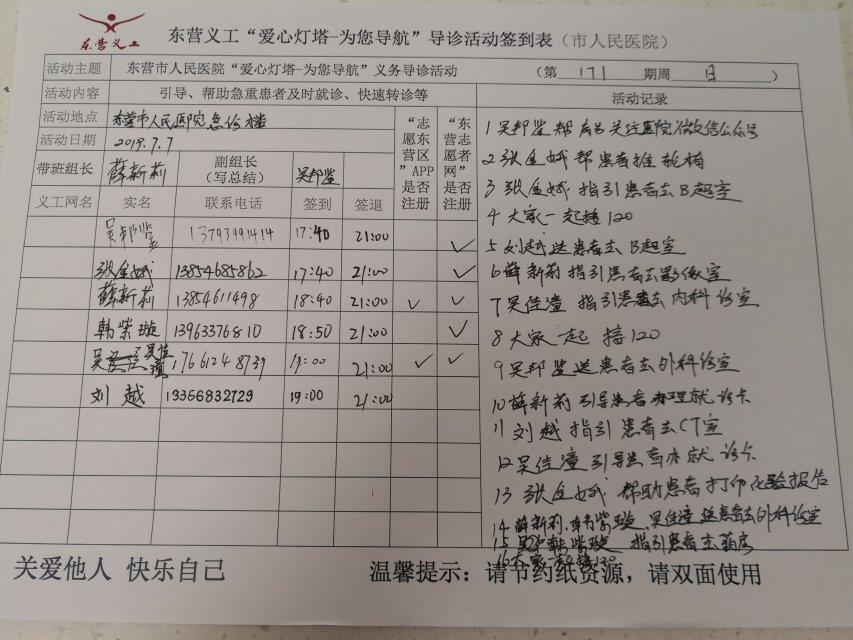 东营义工
东营义工“爱心灯塔-为您导航”导诊活动签到表（市人民医院）
活动主题 东营市人民医院“爱心灯塔-为您导航”义务导诊活动 （第 171 期周 日 ）
活动内容 引导、帮助急重患者及时就诊、快速转诊等 活动记录
活动地点 东营市人民医院急诊楼
活动日期 2019.7.7
带班组长 薛新莉 副组长（写总结） 吴邦鉴
“志愿东营区”APP是否注册
“东营志愿者网”是否注册
义工网名 实名 联系电话 签到 签退
吴邦鉴 13793991414 17:40 21:00 ✓
张金娥 13854685862 17:40 21:00 ✓
薛新莉 13854611498 18:40 21:00 ✓ ✓
韩紫璇 13963376810 18:50 21:00 ✓
吴佳潼 17661248739 19:00 21:00 ✓ ✓
刘越 19366832729 19:00 21:00
1 吴邦鉴帮 关注医院微信公众号
2 张金娥 帮患者推轮椅
3 张金娥 指引患者去B超室
4 大家一起接120
5 刘越送患者去B超室
6 薛新莉指引患者去影像室
7 吴佳潼 指引患者去内科诊室
8 大家一起接120
9 吴邦鉴送患者去外科诊室
10 薛新莉引导患者办理就诊卡
11 刘越指引患者去CT室
12 吴佳潼引导患者办就诊卡
13 张金娥 帮助患者打印化验报告
14 薛新莉、韩紫璇、吴佳潼送患者去外科诊室
15 韩紫璇 指引患者去药房
16 大家一起接120
关爱他人 快乐自己
温馨提示：请节约纸资源，请双面使用